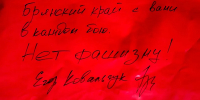 Брянский край с вами
в каждом бою
Нет фашизму!
Ковальчук